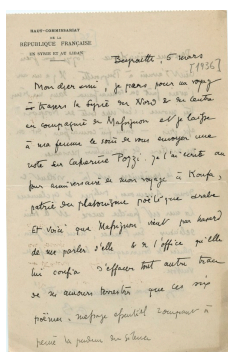 HAUT-COMMISSARIAT
DE LA
RÉPUBLIQUE FRANÇAISE
EN SYRIE ET AU LIBAN
Beyrouth, 5 mars
[1936]
Mon cher ami, je pars pour un voyage
à travers la Syrie du Nord et du centre
en compagnie de Massignon et je laisse
à ma femme le soin de vous envoyer une
note sur Catherine Pozzi. je l'ai écrite au
jour anniversaire de mon voyage à Koufa,
patrie du platonisme poétique arabe
Et voici que Massignon vient par hasard
de me parler d'elle & de l'office qu'elle
lui confia d'effacer tout autre trace
de ses amours terrestres que ces six
poèmes, message essentiel
la pudeur du silence